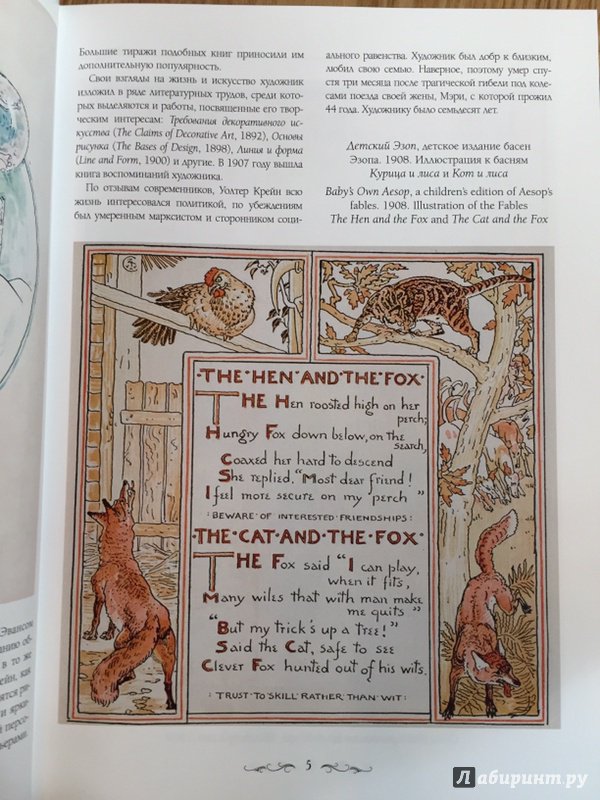 Большие тиражи подобных книг приносили им
дополнительную популярность.
Свои взгляды на жизнь и искусство художник
изложил в ряде литературных трудов, среди кото-
рых выделяются и работы, посвященные его твор-
ческим интересам: Требования декоративного ис-
кусства (The Claims of Decorative Art, 1892), Основы
рисунка (The Bases of Design, 1898), Линия и форма
(Line and Form, 1900) и другие. В 1907 году вышла
книга воспоминаний художника.
По отзывам современников, Уолтер Крейн всю
жизнь интересовался политикой, по убеждениям
был умеренным марксистом и сторонником соци-
ального равенства. Художник был добр к близким,
любил свою семью. Наверное, поэтому умер спу-
стя три месяца после трагической гибели под коле-
сами поезда своей жены, Мэри, с которой прожил
44 года. Художнику было семьдесят лет.
Детский Эзоп, детское издание басен
Эзопа. 1908. Иллюстрация к басням
Курица и лиса и Кот и лиса
Baby's Own Aesop, a children's edition of Aesop's
fables. 1908. Illustration of the Fables
The Hen and the Fox and The Cat and the Fox
THE·HEN·AND·THE·FOX·
THE Hen roosted high on her
perch;
Hungry Fox down below, on the
search,
Coaxed her hard to descend
She replied, "Most dear friend!
I feel more secure on my perch"
:BEWARE·OF·INTERESTED·FRIENDSHIPS:
·THE·CAT·AND·THE·FOX·
THE Fox said "I can play,
when it fits,
Many wiles that with man make
me quits"
"But my trick's up a tree!"
Said the Cat, safe to see
Clever Fox hunted out of his wits.
:TRUST·TO·SKILL·RATHER·THAN·WIT:
Эвансом
анию об-
в то же
ейн, как
ятся ри-
и ярки-
й персо-
ьерами.
5
Лабиринт.ру